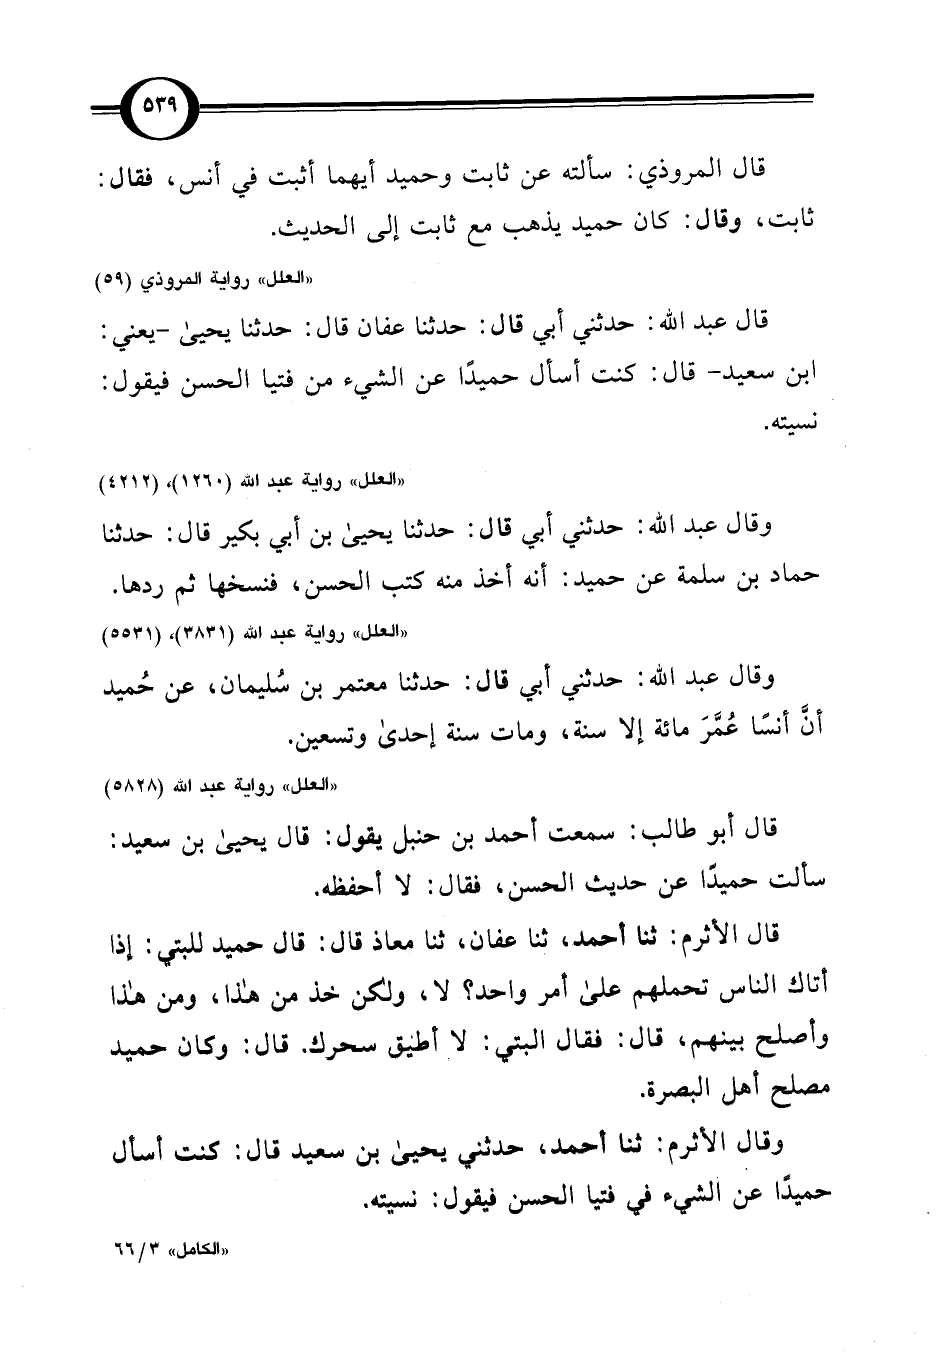 ٥٣٩
قال المروذي: سألته عن ثابت وحميد أيهما أثبت في أنس، فقال:
ثابت، وقال: كان حميد يذهب مع ثابت إلى الحديث.
«العلل» رواية المروذي (٥٩)
قال عبد الله: حدثني أبي قال: حدثنا عفان قال: حدثنا يحيىٰ -يعني:
ابن سعيد- قال: كنت أسأل حميدًا عن الشيء من فتيا الحسن فيقول:
نسيته.
«العلل» رواية عبد الله (١٢٦٠)، (٤٢١٢)
وقال عبد الله: حدثني أبي قال: حدثنا يحيىٰ بن أبي بكير قال: حدثنا
حماد بن سلمة عن حميد: أنه أخذ منه كتب الحسن، فنسخها ثم ردها.
«العلل» رواية عبد الله (٣٨٣١)، (٥٥٣١)
وقال عبد الله: حدثني أبي قال: حدثنا معتمر بن سُليمان، عن حُميد
أنَّ أنسًا عُمَّرَ مائة إلا سنة، ومات سنة إحدىٰ وتسعين.
«العلل» رواية عبد الله (٥٨٢٨)
قال أبو طالب: سمعت أحمد بن حنبل يقول: قال يحيىٰ بن سعيد:
سألت حميدًا عن حديث الحسن، فقال: لا أحفظه.
قال الأثرم: ثنا أحمد، ثنا عفان، ثنا معاذ قال: قال حميد للبتي: إذا
أتاك الناس تحملهم علىٰ أمر واحد؟ لا، ولكن خذ من هٰذا، ومن هٰذا
وأصلح بينهم، قال: فقال البتي: لا أطيق سحرك. قال: وكان حميد
مصلح أهل البصرة.
وقال الأثرم: ثنا أحمد، حدثني يحيىٰ بن سعيد قال: كنت أسأل
حميدًا عن الشيء في فتيا الحسن فيقول: نسيته.
«الكامل» ٣/ ٦٦